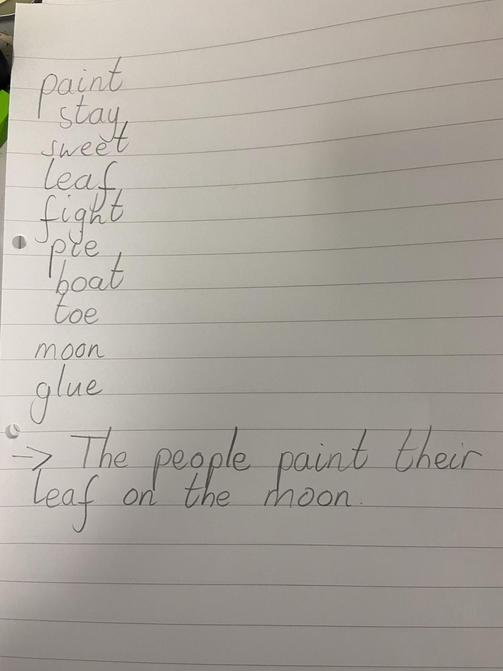 paint
stay
sweet
leaf
fight
pie
boat
toe
moon
glue
-> The people paint their
leaf on the moon.